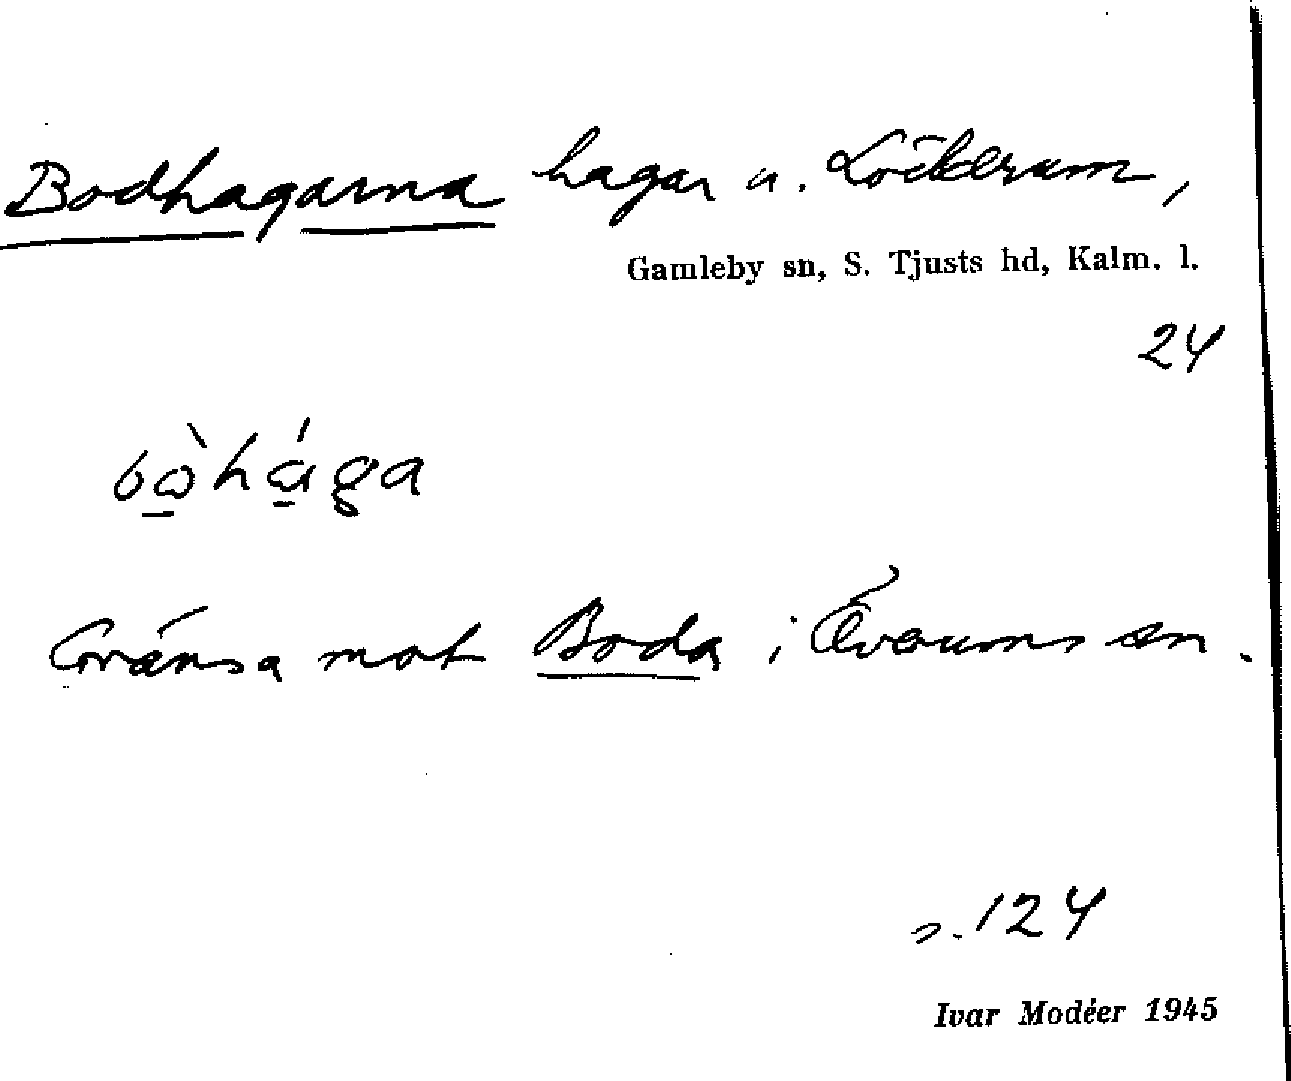 Bodhagarna hagar u. Loftderum,
Gamleby sn, S. Tjusts hd, Kalm. l.
24
Gränsa mot Boda i Överums sn.
s. 124
Ivar Modéer 1945